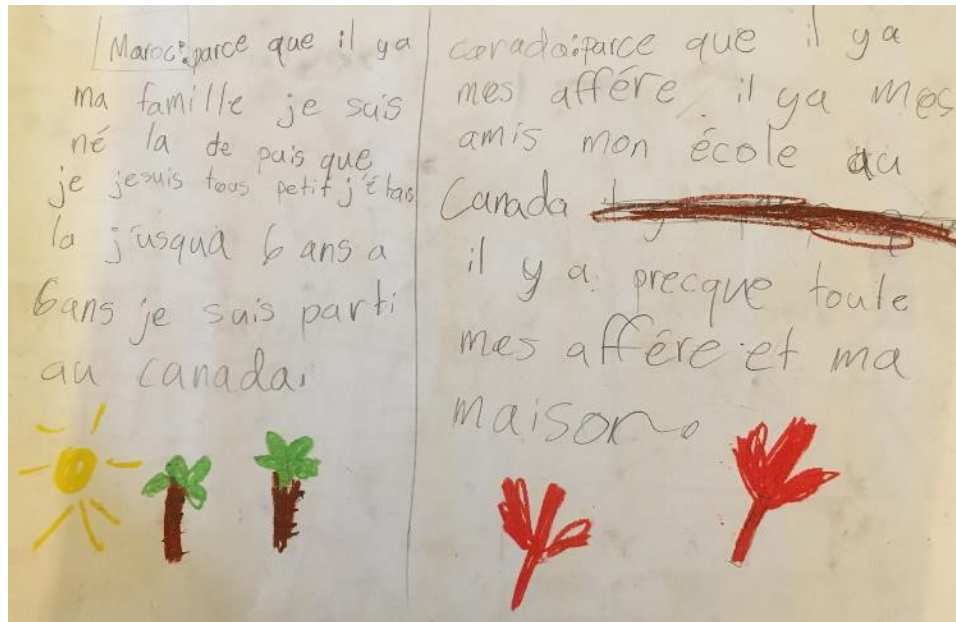 Maroc: parce que il ya
ma famille je suis
né la de puis que
je jesuis tous petit j'étais
la j'usqua 6 ans a
6ans je suis parti
au canada.
canada: parce que il ya
mes affére il ya mes
amis mon école au
Canada
il y a precque toute
mes affére et ma
maison.